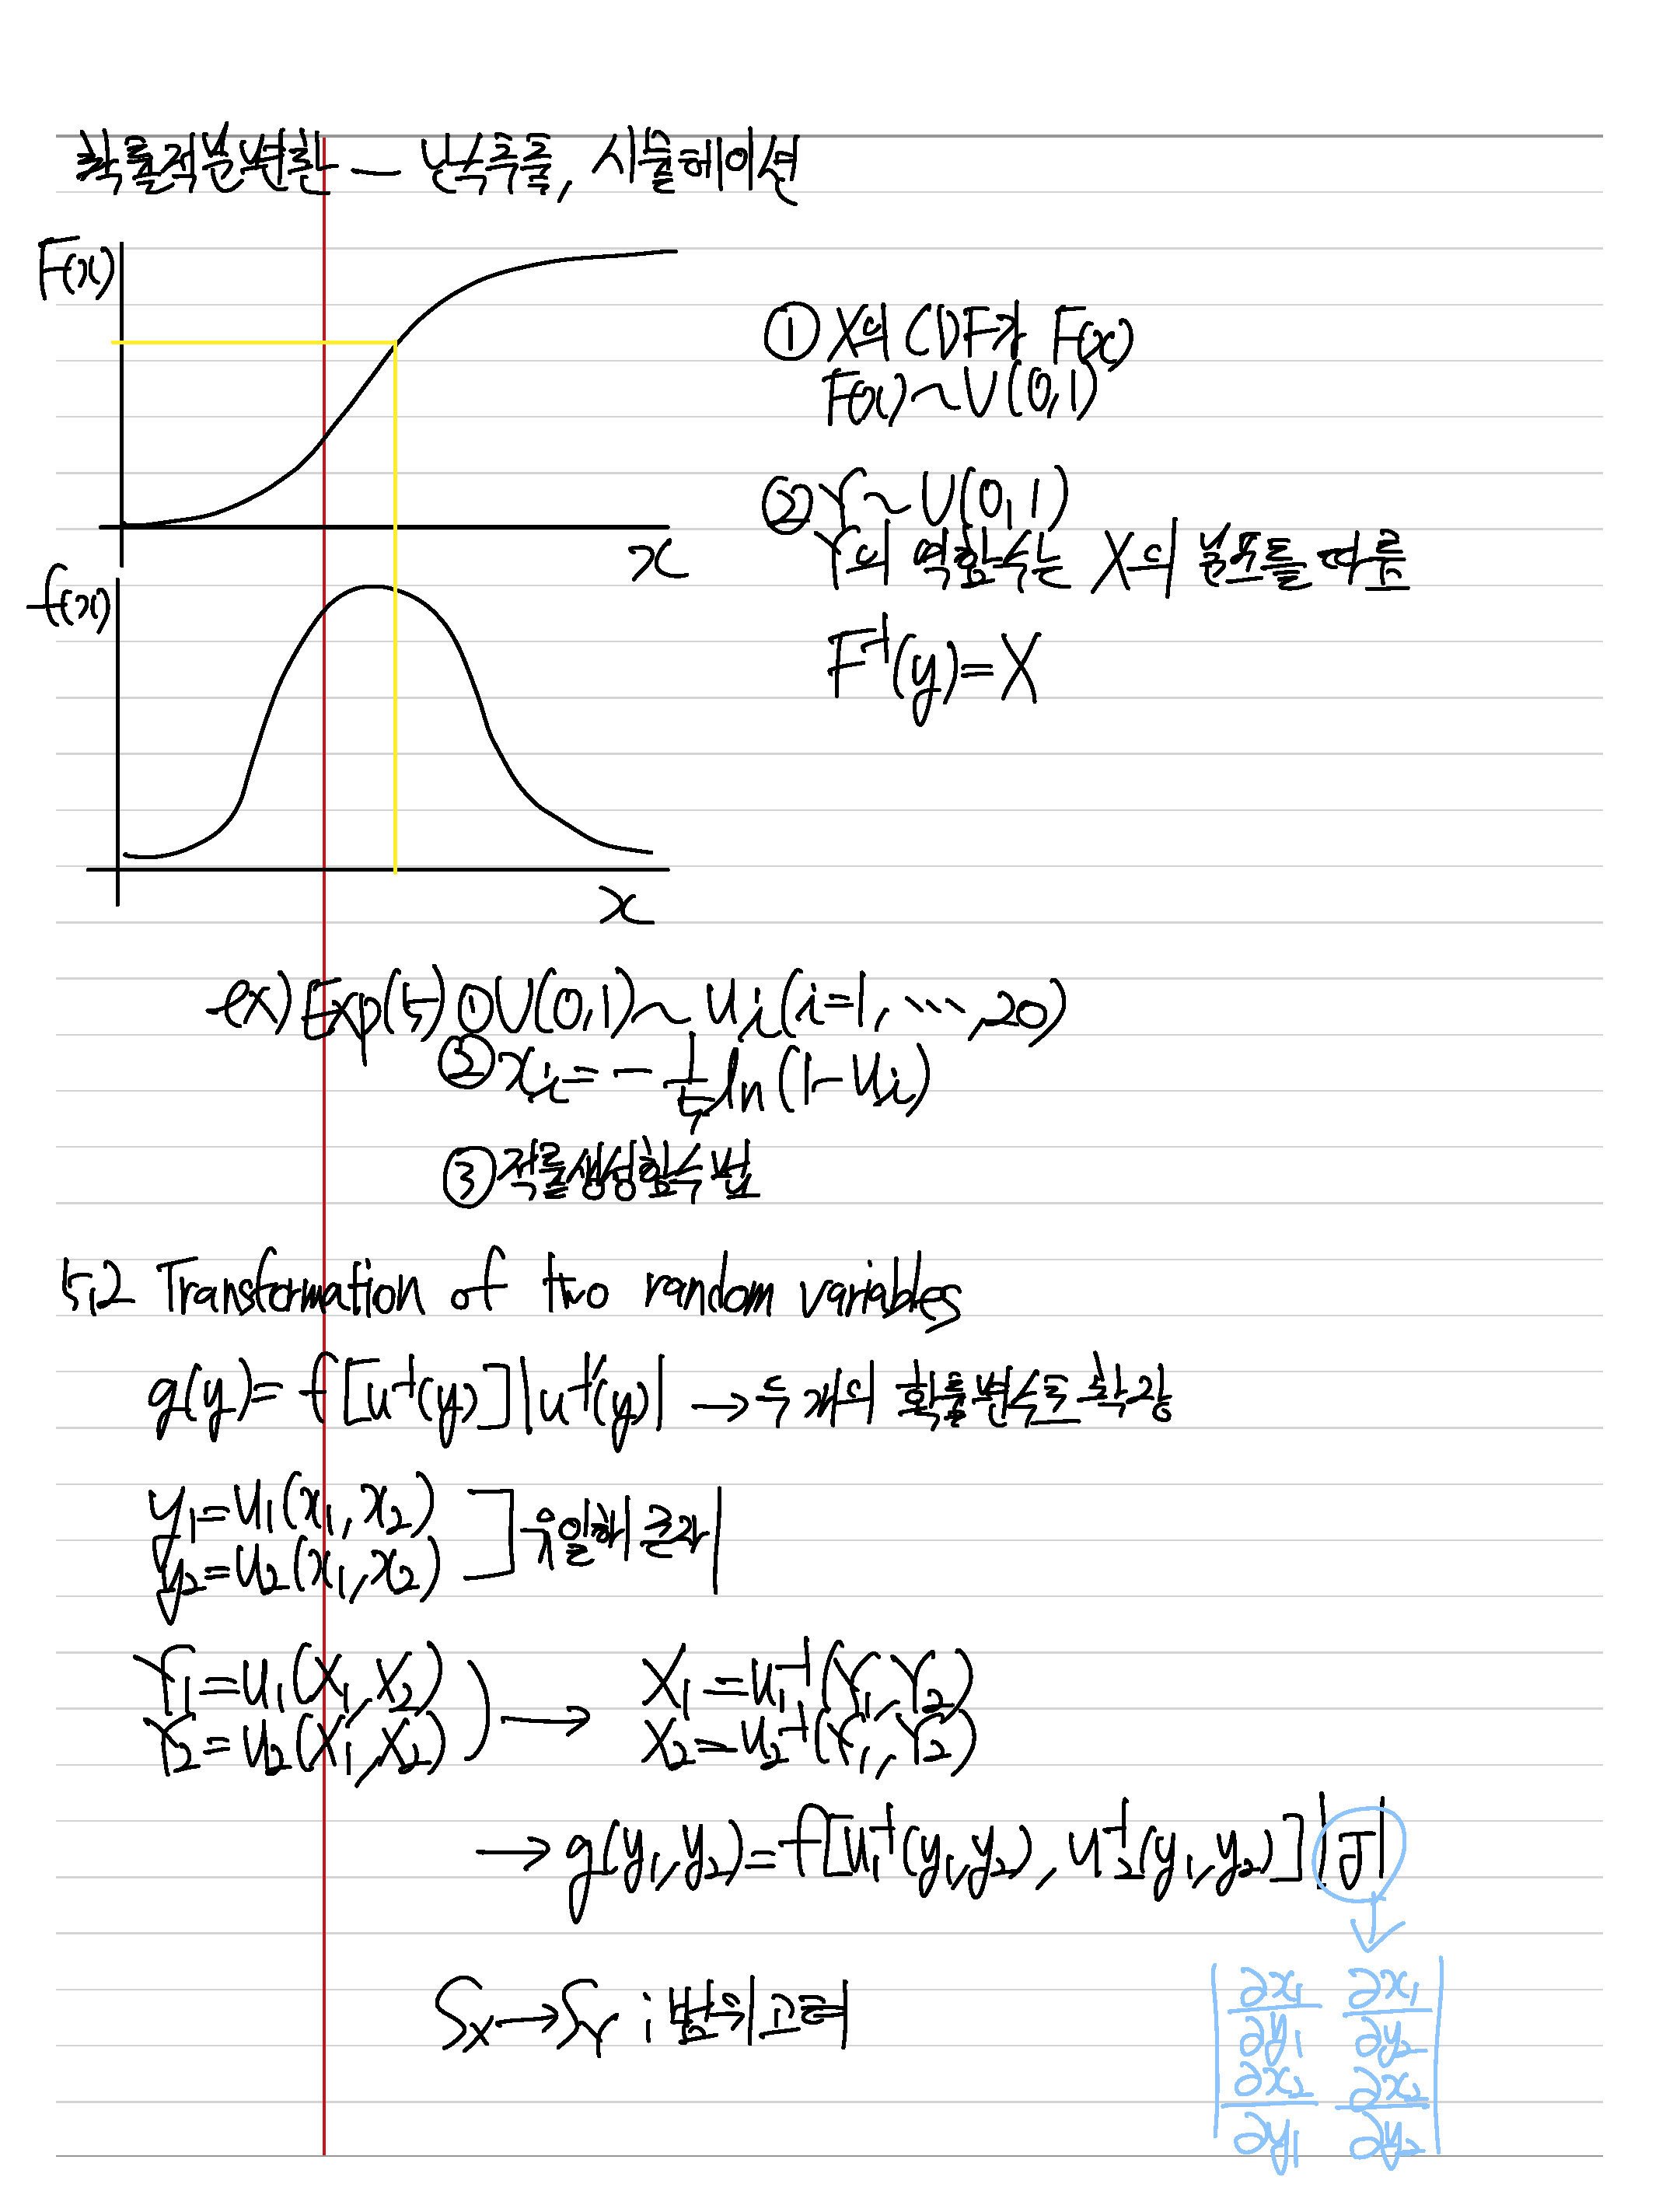 확률적분변환 — 난수추출, 시뮬레이션
F(x)
① X의 CDF가 F(x)
F(x)~U(0,1)
② Y~U(0,1)
Y의 역함수는 X의 분포를 따름
F⁻¹(y)=X
x
f(x)
x
ex) Exp(5) ① U(0,1)~Ui(i=1, ⋯, 20)
② xi = -1/5 ln(1-Ui)
③ 적률생성함수법
5.2 Transformation of two random variables
g(y)=f[u⁻¹(y)]|u⁻¹′(y)| → 두 개의 확률변수로 확장
y₁=u₁(x₁, x₂)
y₂=u₂(x₁, x₂) ] 유일해 존재
Y₁=u₁(X₁, X₂) X₁=u₁⁻¹(Y₁, Y₂)
Y₂=u₂(X₁, X₂) ) → X₂=u₂⁻¹(Y₁, Y₂)
→ g(y₁, y₂)=f[u₁⁻¹(y₁, y₂), u₂⁻¹(y₁, y₂)]|J|
Sx→SY ; 범위고려
∂x₁/∂y₁ ∂x₁/∂y₂
∂x₂/∂y₁ ∂x₂/∂y₂